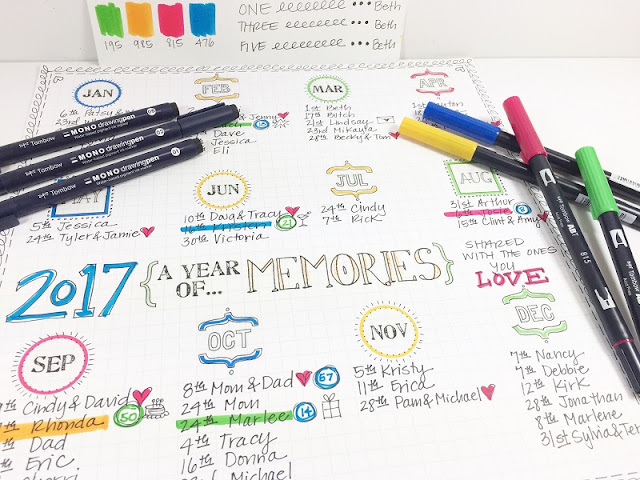 ONE Beth
THREE Beth
FIVE Beth
195 985 815 476
JAN
6th Patsy
23rd
FEB
& Jenny
Dave
Jessica
Eli
MAR
1st Beth
17th Butch
21st Lindsay
23rd Mikayla
28th Becky & Tom
APR
Tombow MONO drawing pen
Tombow MONO drawing pen
Tombow MONO drawing pen
815
MAY
5th Jessica
24th Tyler & Jamie
JUN
10th Doug & Tracy
16th Kristen 21
30th Victoria
JUL
24th Cindy
7th Rick
AUG
31st Arthur
6th Josie
15th Clint & Amy
2017 {A YEAR OF... MEMORIES}
SHARED WITH THE ONES YOU LOVE
SEP
Cindy & David
Rhonda 50
Dad
Eric
OCT
8th Mom & Dad 57
24th Mom
24th Marlee 14
4th Tracy
16th Donna
Michael
NOV
5th Kristy
11th Erica
28th Pam & Michael
DEC
7th Nancy
4th Debbie
12th Kirk
28th Jonathan
8th Marlene
31st Sylvia &